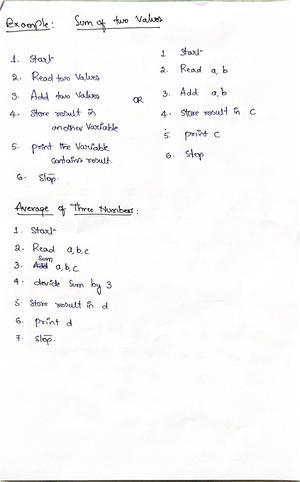 Example: Sum of two Values
1. Start
2. Read two Values
3. Add two Values
4. Store result in
another Variable
5. print the Variable
contains result.
6. Stop.
OR
1 Start
2. Read a, b
3. Add a, b
4. Store result in C
5. print C
6. Stop
Average of Three Numbers:
1. Start
2. Read a,b,c
Sum
3. Add a,b,c
4. devide Sum by 3
5. Store result in d
6. print d
7. Stop.